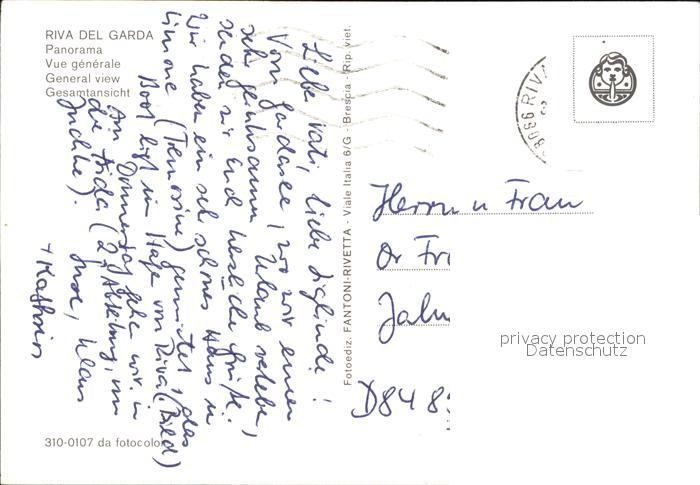 RIVA DEL GARDA
Panorama
Vue générale
General view
Gesamtansicht
Liebe Vati, liebe Sieglinde!
Vom Gardasee, wo wir einen
sehr geruhsamen Urlaub verleben,
senden wir Euch herzliche Grüße.
Wir haben ein sehr schönes Haus in
Limone (Tremosine) gemietet, das
Boot liegt im Hafen von Riva (Bild)
Am Donnerstag gehen wir in
die Aida (2. Abteilung, im
Juchhe).
Eure, Klaus
+ Kathrin
Fotoediz. FANTONI-RIVETTA - Viale Italia 6/G - Brescia - Rip. viet.
38066 RIVA
Herrn u Frau
Dr Fri
Jahn
D848
privacy protection
Datenschutz
310-0107 da fotocolor